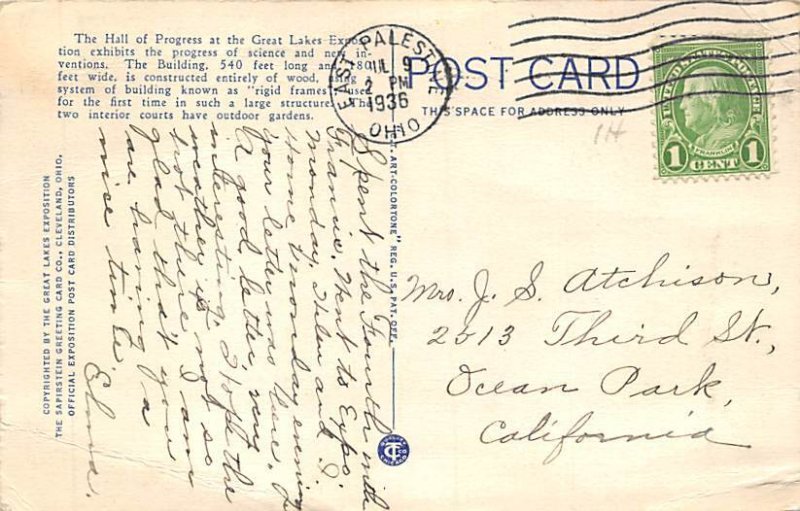 The Hall of Progress at the Great Lakes Exposi-
tion exhibits the progress of science and new in-
ventions. The Building, 540 feet long and 180
feet wide, is constructed entirely of wood, using a
system of building known as "rigid frames" used
for the first time in such a large structure. The
two interior courts have outdoor gardens.
EAST PALESTINE
JUL 9
2 PM
1936
OHIO
POST CARD
THIS SPACE FOR ADDRESS ONLY
UNITED STATES POSTAGE
FRANKLIN
1 CENT 1
1H
COPYRIGHTED BY THE GREAT LAKES EXPOSITION
THE SAPIRSTEIN GREETING CARD CO., CLEVELAND, OHIO.
OFFICIAL EXPOSITION POST CARD DISTRIBUTORS
Spent the Fourth with
Went to Expo.
Monday. Helen and I.
Home Monday evening
your letter was here.
a good letter, very
interesting. I hope the
weather is not so
hot there. I am
glad that you
are having a
nice time.
Elma.
ART-COLORTONE" REG. U.S. PAT. OFF.
Mrs. J. S. Atchison,
2513 Third St.,
Ocean Park,
California
CHICAGO